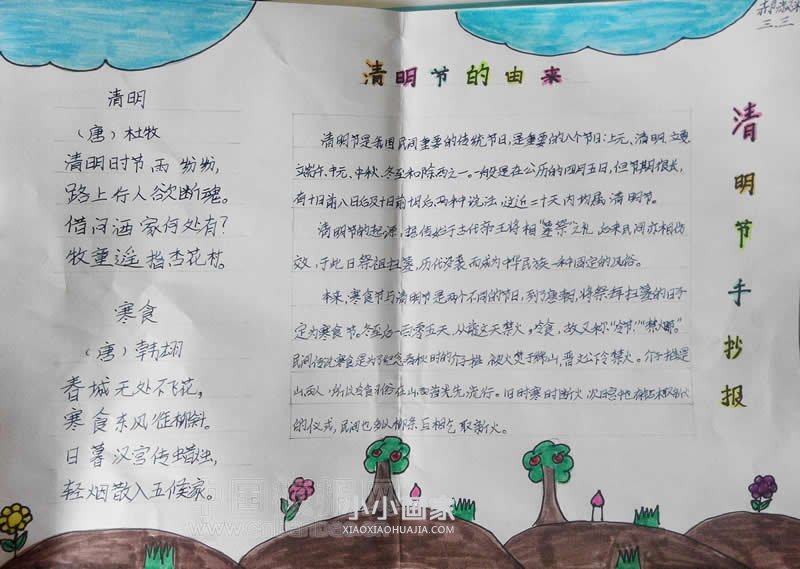 清明节的由来
清明节手抄报
三.三
清明
（唐）杜牧
清明时节雨纷纷，
路上行人欲断魂。
借问酒家何处有？
牧童遥指杏花村。
寒食
（唐）韩翃
春城无处不飞花，
寒食东风御柳斜。
日暮汉宫传蜡烛，
轻烟散入五侯家。
清明节是我国民间重要的传统节日，是重要的八个节日：上元、清明、立夏
端午、中元、中秋、冬至和除夕之一。一般是在公历的四月五日，但节期很长，
有十日前八日后及十日前十日后两种说法，这近二十天内均属清明节。
清明节的起源，据传始于古代帝王将相"墓祭"之礼，后来民间亦相仿
效，于此日祭祖扫墓，历代沿袭而成为中华民族一种固定的风俗。
本来，寒食节与清明节是两个不同的节日，到了唐朝，将祭拜扫墓的日子
定为寒食节。冬至后一百零五天，从前这天禁火，冷食，故又称"冷节""禁烟节"。
民间传说寒食是为了纪念春秋时的介子推被火焚于绵山，晋文公下令禁火。介子推是
山西人，所以冷食习俗在山西首先流行。旧时寒时断火，次日宫中有钻木取新火
的仪式，民间也多以柳条互相乞取新火。
小小画家
XIAOXIAOHUAJIA.COM